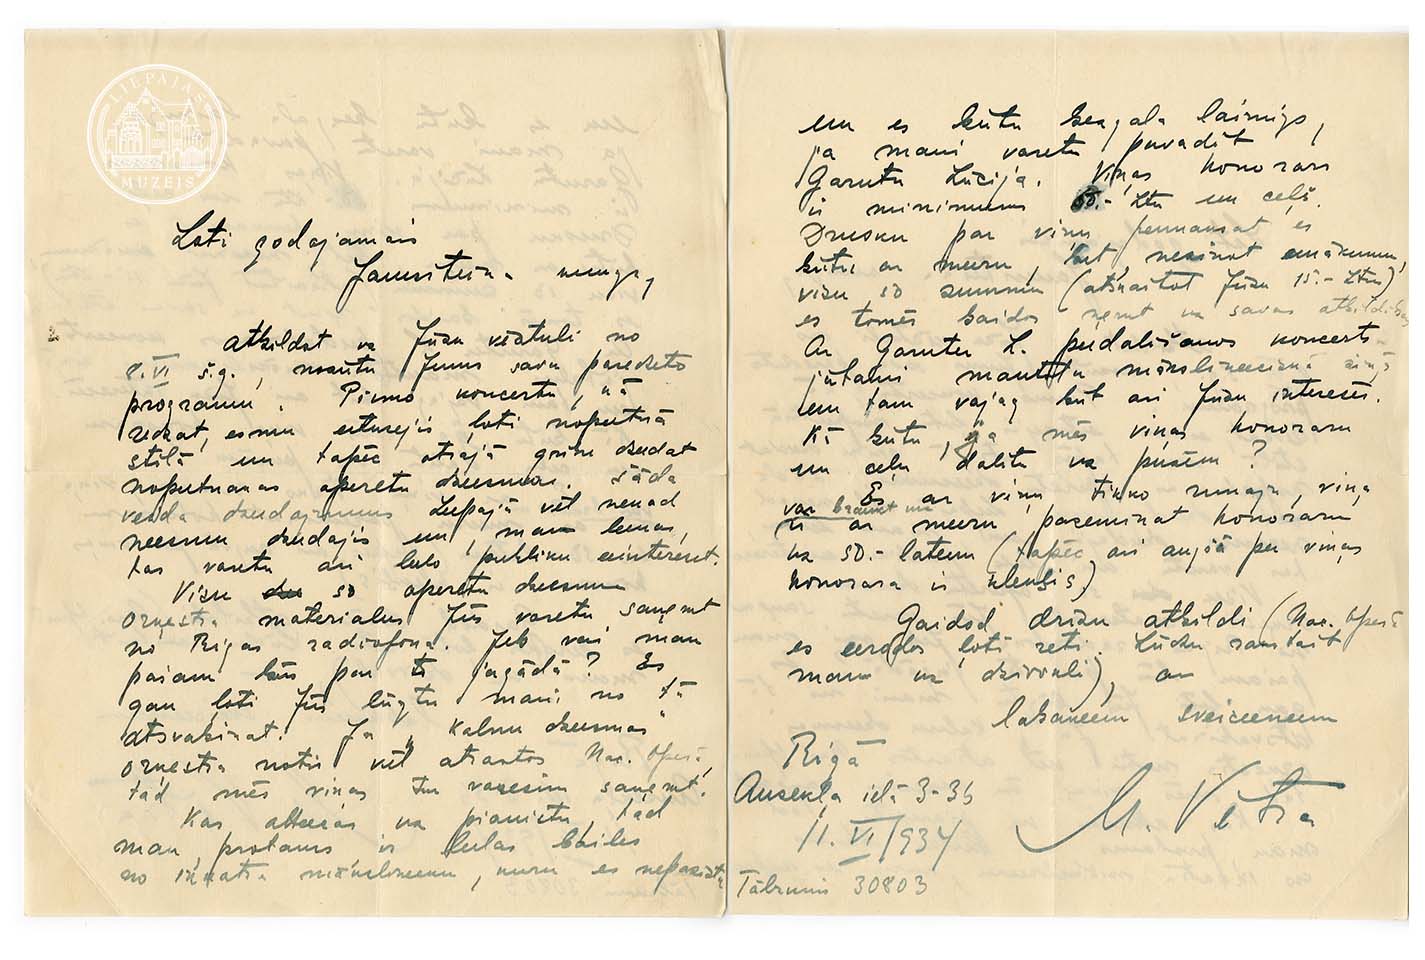 LIEPĀJAS
MUZEJS
Ļoti godājamais
Jaunsteina kungs,
Atbildot uz Jūsu vēstuli no
8.VI š.g., nosūtu Jums savu paredzēto
programu. Pirmo koncertu, kā
redzat, esmu ieturējis ļoti nopietnā
stilā un tāpēc otrajā gribu dziedāt
nopietnākas operešu dziesmas. Šāda
veida dziedājumus Liepājā vēl nekad
neesmu dziedājis un, man liekas,
tas varētu arī lielo publiku ieinteresēt.
Visu šo operešu dziesmu
orķestra materialus Jūs varētu saņemt
no Rīgas radiofona. Jeb vai man
pašam būs par to jāgādā? Es
gan ļoti Jūs lūgtu mani no tā
atsvabināt. Ja „Kalnu dziesmas"
orķestra notis vēl atrastos Nac. Operā,
tad mēs viņas tur varēsim saņemt.
Kas attiecās uz pianistu, tad
man, protams ir lielas bailes
no katra mākslinieku, kuru es nepazīstu
un es būtu bezgala laimīgs,
ja mani varētu pavadīt
Garuta Lūcija. Viņas honorars
ir minimums 50.- Ltu un ceļš.
Drusku par viņu finansēt es
būtu ar mieru, bet, nezinot ienākumu,
visu šo summu (atskaitot Jūsu 15.- Ltu)
es tomēr baidos ņemt uz savas atbildības
Ar Garutas L. piedalīšanos koncerts
jūtami mantotu mākslinieciskā ziņā
un tam vajag būt arī Jūsu interesēs.
Kā būtu, ja mēs viņas honoraru
un ceļu dalītu uz pusēm?
Es ar viņu tikko runāju, viņa
var braukt un
ir ar mieru pazemināt honoraru
uz 50.- latiem (tāpēc arī augšā pie viņas
honorara ir kleksis)
Gaidot drīzu atbildi (Nac. Operā
es ierodos ļoti reti. Lūdzu rakstāt
man uz dzīvokli), ar
labākiem sveicieniem
Rīgā
Ausekļa ielā 3-36
M. Vētra
11.VI/934
Tālrunis 30803